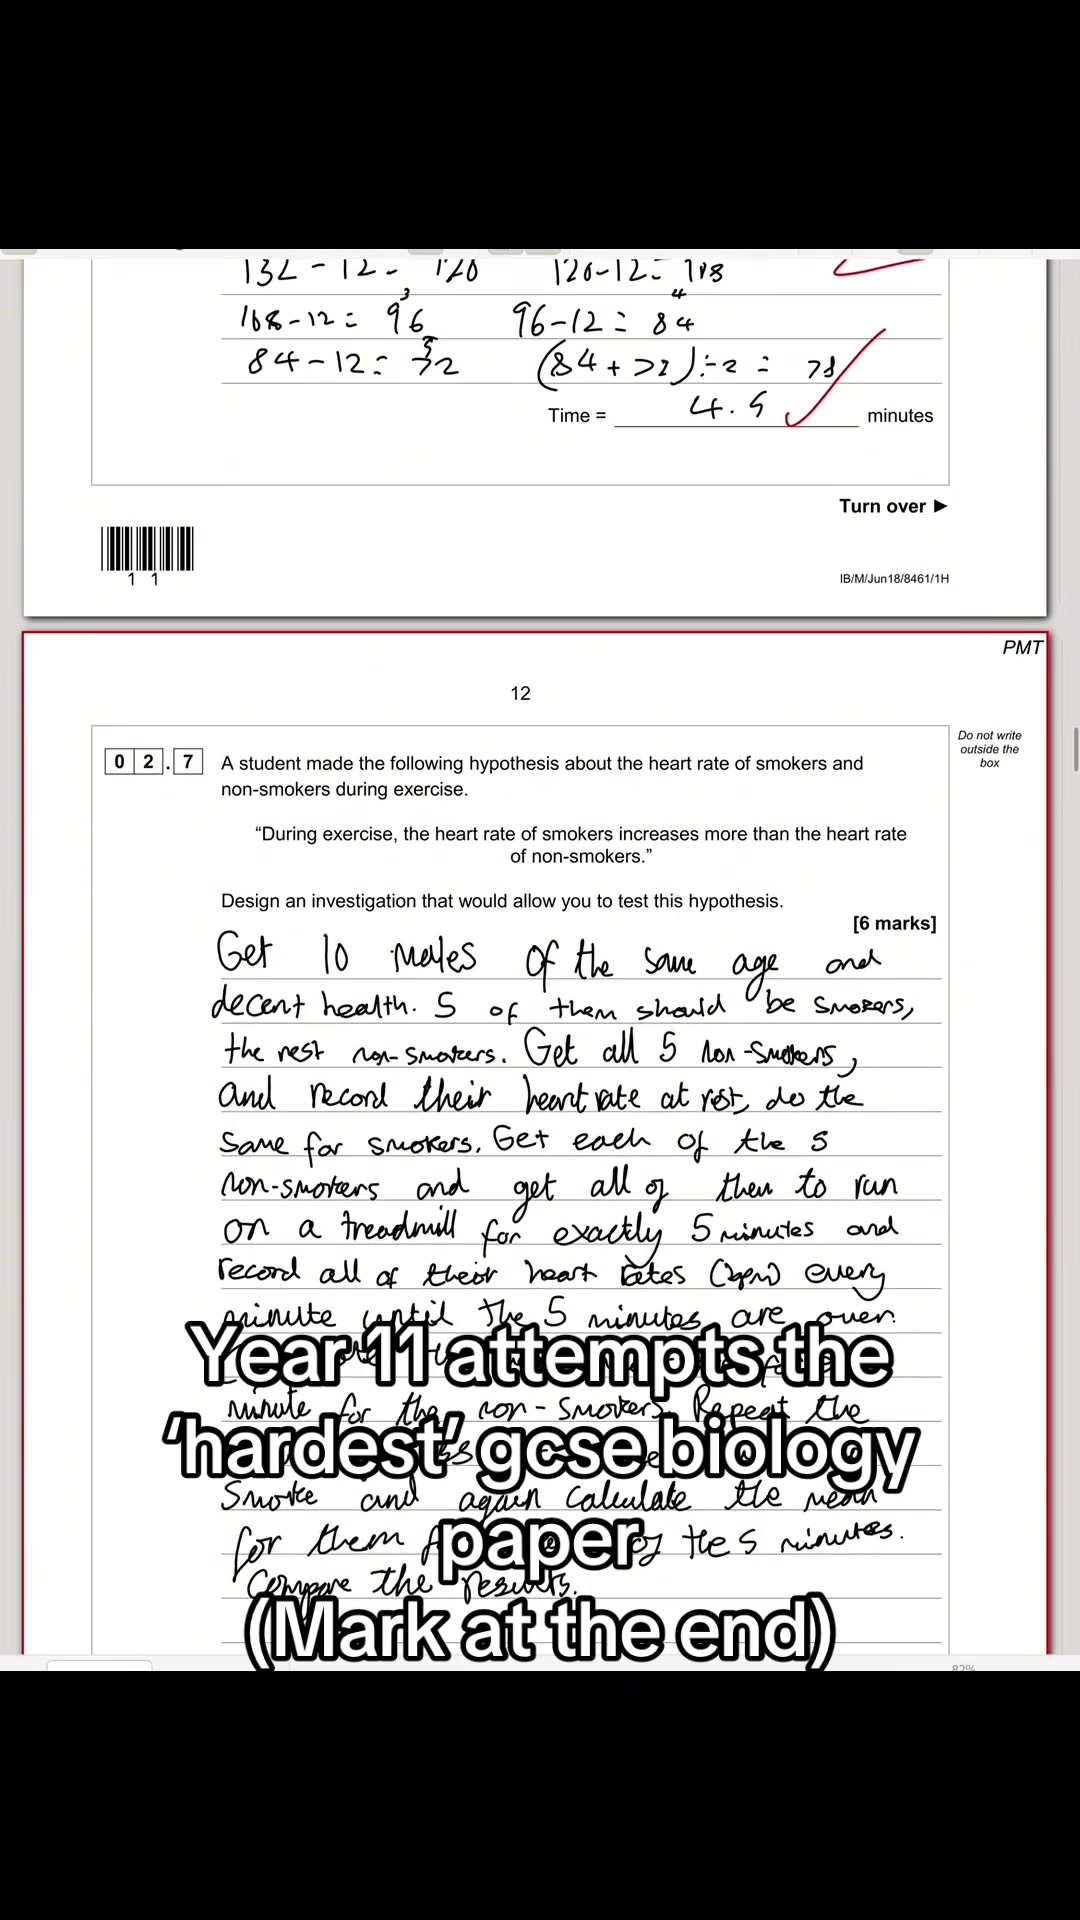 132 - 12 = 120 120-12 = 108
108-12 = 96 3 96-12 = 84 4
84-12 = 72 5 (84+72)÷2 = 78
Time = 4.5 minutes
Turn over ►
1 1
IB/M/Jun18/8461/1H
PMT
12
Do not write
outside the
box
0 2 . 7 A student made the following hypothesis about the heart rate of smokers and
non-smokers during exercise.
“During exercise, the heart rate of smokers increases more than the heart rate
of non-smokers.”
Design an investigation that would allow you to test this hypothesis.
[6 marks]
Get 10 males of the same age and
decent health. 5 of them should be smokers,
the rest non-smokers. Get all 5 non-smokers,
and record their heart rate at rest, do the
same for smokers. Get each of the 5
non-smokers and get all of them to run
on a treadmill for exactly 5 minutes and
record all of their heart rates (bpm) every
minute until the 5 minutes are over.
minute for the non-smokers. Repeat the
smoke and again calculate the mean
for them of the 5 minutes.
Compare the results.
Year 11 attempts the
‘hardest’ gcse biology
paper
(Mark at the end)
82%